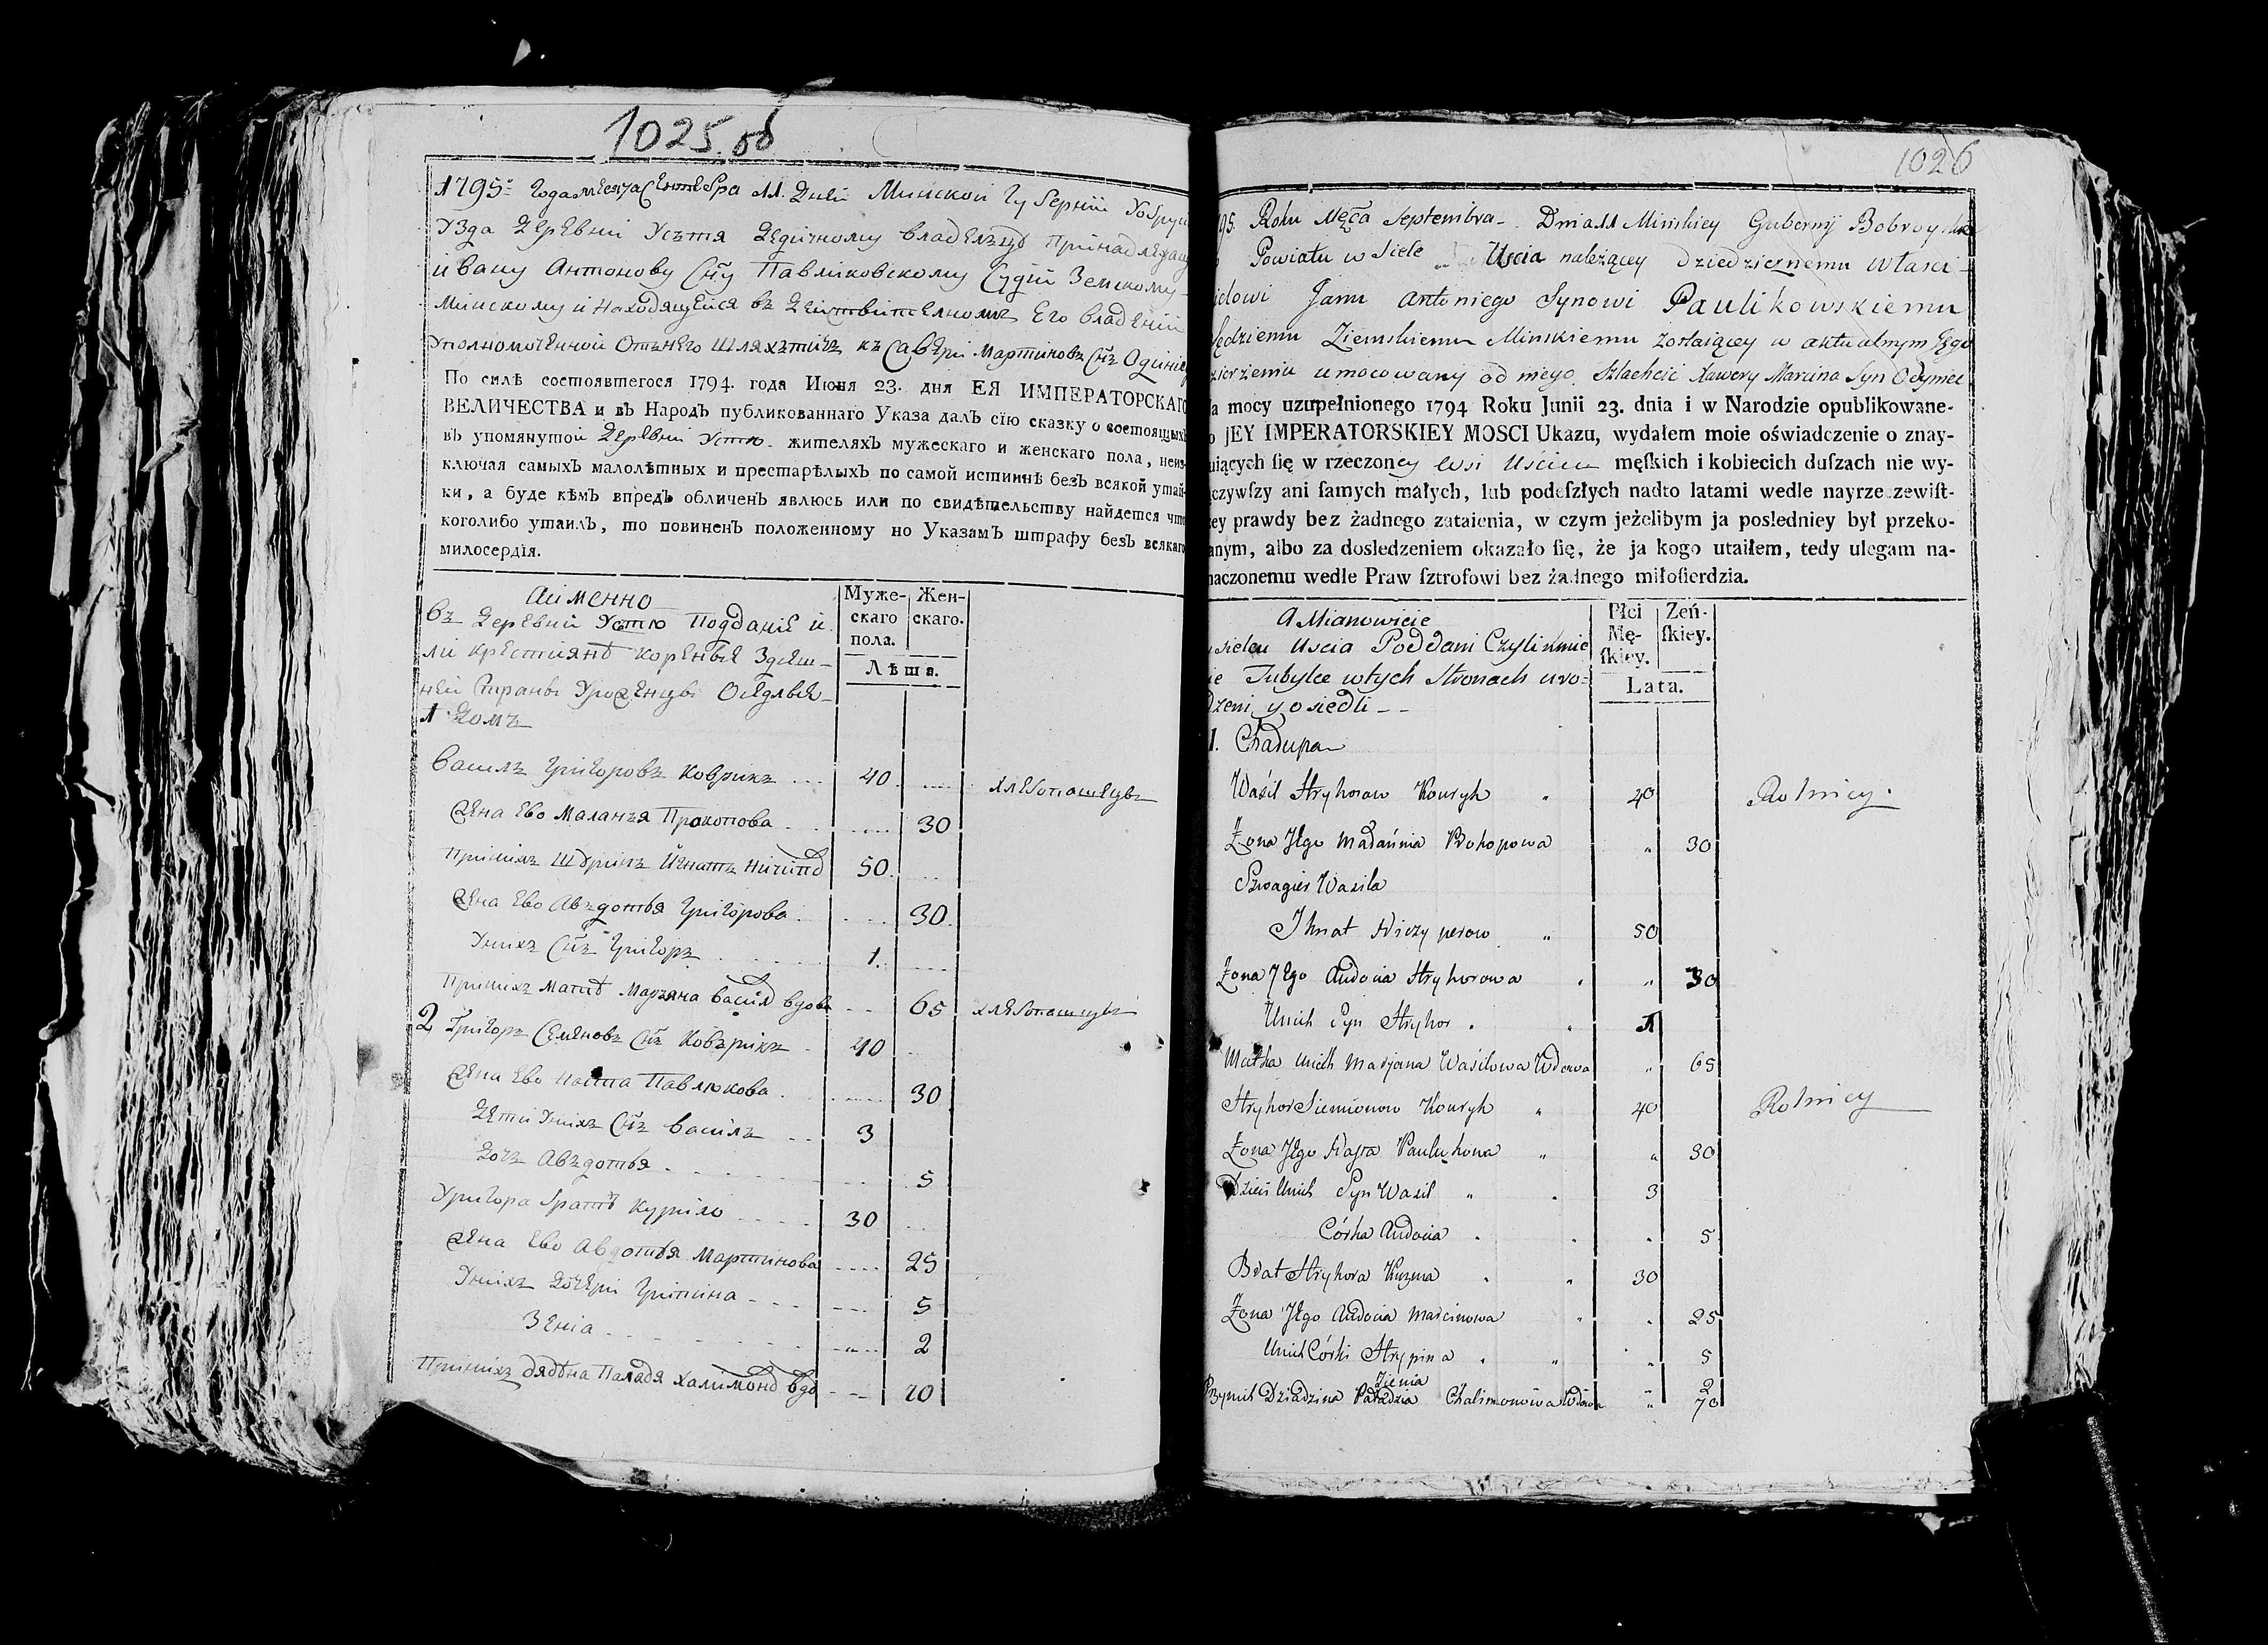 1025 об
1795 года месяца Сентебра 11 дней Минской Губернии Бобруй
узда деревни Усътя Дедичному владелъцу принадлежащ
Ивану Антонову Сну Павликовскому Судии Земскому
Минскому и Находящейся въ действителномъ Его владении
уполномоченной Отънего Шляхътичъ Мартиновъ Снъ
По силѣ состоявшегося 1794. года Июня 23. дня ЕЯ ИМПЕРАТОРСКАГО
ВЕЛИЧЕСТВА и въ Народъ публикованнаго Указа далъ сїю сказку о состоящихъ
въ упомянутой Деревни Устю жителяхъ мужескаго и женскаго пола, неиз-
ключая самыхъ малолѣтныхъ и престарѣлыхъ по самой истиннѣ безъ всякой утай-
ки, а буде кѣмъ впредъ обличенъ явлюсь или по свидѣтельству найдется что
коголибо утаилъ, то повиненъ положенному но Указамъ штрафу безъ всякаго
милосердїя.
Аименно
Въ Деревни Устю Поддание и
ли крестиянѣ коренъые Здеш-
ней Страны Уроженцы Оседлые
1 домъ
Муже-
скаго
пола.
Жен-
скаго.
Лѣта.
Василъ Григоровъ Коврикъ 40 хлебопашецъ
Жена Ево Маланъя Прокопова 30
Принихъ Шуринъ Игнатъ Ничип 50
Жена Ево Авъдотья Григорова 30
Унихъ Снъ Григоръ 1.
Принихъ Матѣ Маръяна Васил вдова 65 хлебопашцы
2 Григоръ Семеновъ Снъ Ковърикъ 40
Жена Ево Наста Павлюкова 30
Дети Унихъ Снъ Василъ 3
Дочъ Авъдотья 5
Григора братѣ Курило 30
Жена Ево Авдотья Мартинова 25
Унихъ Дочери Грипина 5
Зения 2
Принихъ дядѣна Паладя Халимонд вдо 70
1026
95. Roku Męca Septembra Dnia 11 Minskiey Gubernij Bobroyskie
Powiatu w Siele Uscia należącey dziedzicznemu Własci-
cielowi Janu Antoniego Synowi Paulikowskiemu
Sędziemu Ziemskiemu Minskiemu zostaiącey w aktualnym Jego
dzierżeniu umocowany od niego Szlachcic Xawery Marcina Syn Odyniec
a mocy uzupełnionego 1794 Roku Junii 23. dnia i w Narodzie opublikowane-
o JEY IMPERATORSKIEY MOSCI Ukazu, wydałem moie oświadczenie o znay-
uiących ſię w rzeczoney Wsi Uściu męſkich i kobiecich duſzach nie wy-
czywſzy ani ſamych małych, lub podeſzłych nadto latami wedle nayrzeczewiſt-
zey prawdy bez żadnego zataienia, w czym jeżelibym ja posledniey był przeko-
anym, albo za dosledzeniem okazało ſię, że ja kogo utaiłem, tedy ulegam na-
naczonemu wedle Praw ſztrofowi bez żadnego miłoſierdzia.
A Mianowicie
w sielcu Uscia Poddani Czylikmie
ie Tubylce wtych Stronach uro-
dzeni y osiedli
1. Chałupa
Płci
Mę-
ſkiey.
Żeń-
ſkiey.
Lata.
Wasil Hryhorow Kowryk 40 Rolnicy.
Żona Jego Małańnia Prokopowa 30
Szwagier Wasila
Ihnat Niczyperow 50
Żona Jego Audocia Hryhorowa 30
Unich Syn Hryhor 1
Matka unich Marjana Wasilowa Wdowa 65
Hryhor Siemionow Kowryk 40 Rolnicy
Żona Jego Nasta Paulukowa 30
Dzieci Unich Syn Wasil 3
Córka Audocia 5
Brat Hryhora Kuzma 30
Żona Jego Audocia Marcinowa 25
Unich Córki Hrypina 5
Zienia 2
Przynich Dziadzina Paładzia Chalimonowa Wdowa 70